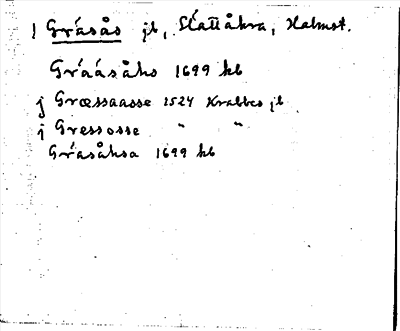 1 Gråsås jb, Slättåkra, Halmst.
Gråásåhs 1699 kb
j Græssaasse 1524 Krabbes jb
j Gressosse " "
Gråsåhsa 1699 kb